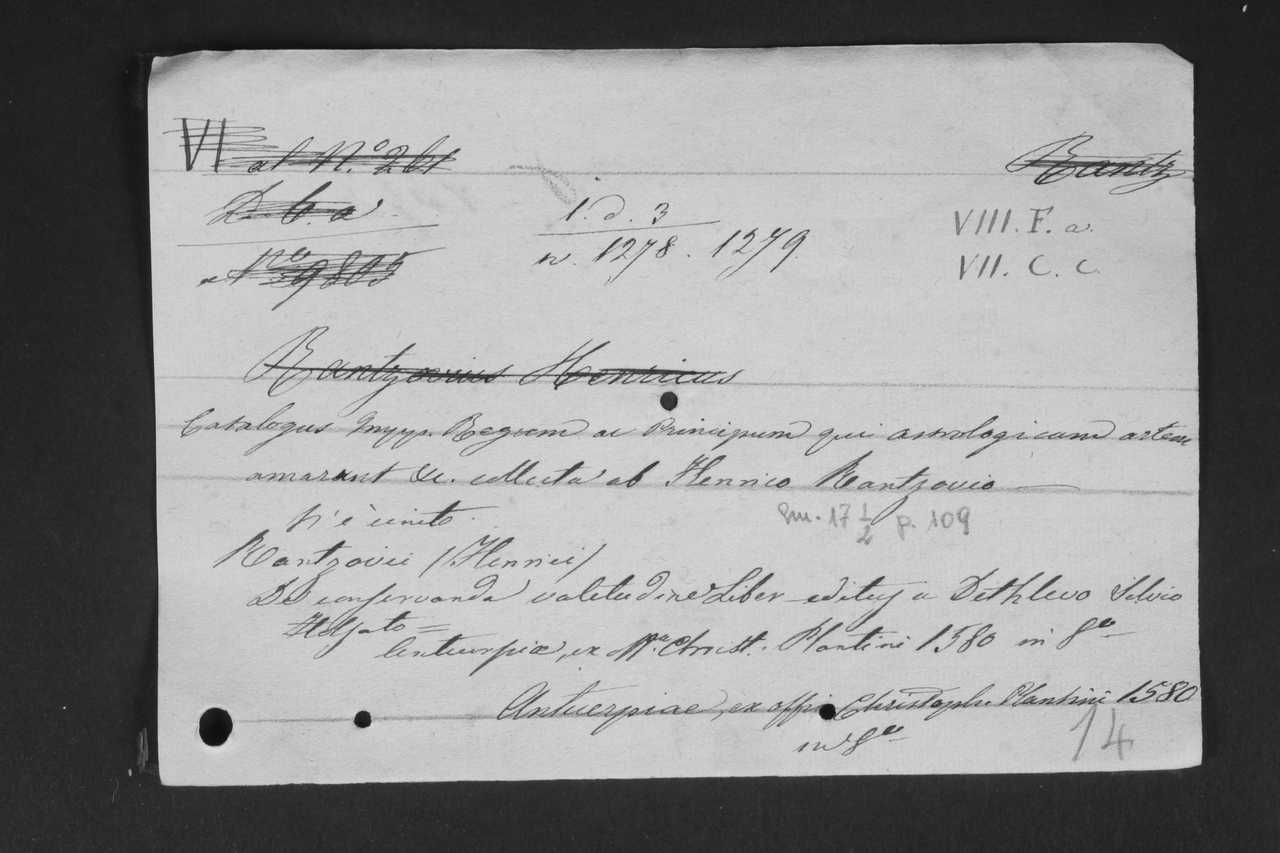 VI al N.º 261
Rantz
D. 6. a
1. d. 3
VIII. F. a.
n. 1278. 1279.
VII. C. c.
Nº 9805
Rantzovius Henricus
Catalogus Impp. Regum ac Principum qui astrologicam artem
amarunt &c. collecta ab Henrico Rantzovio
Vi è unito
17 1/2 p. 109
Rantzovii (Henrici)
De conservanda valetudine Liber editus a Dethlevo Silvio
Holsato =
Antuerpiæ, ex Offª. Christ. Plantini 1580 in 8º
Antuerpiae, ex offic. Christoph. Plantini 1580
in 8º
14